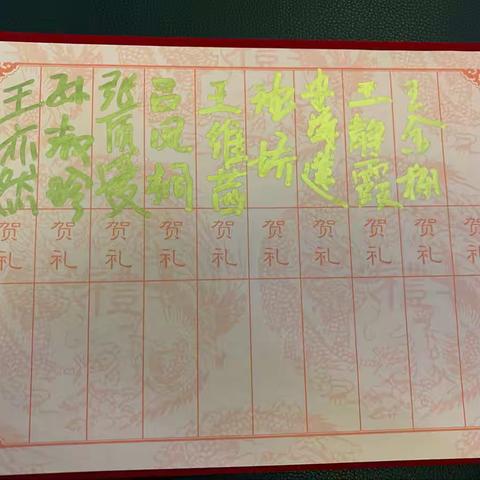 贺礼
王金 贺礼
王静霞 贺礼
海莲 贺礼
贺礼
王维茵 贺礼
吕凤 贺礼
张丽爱 贺礼
孙淑玲 贺礼
王亦然 贺礼